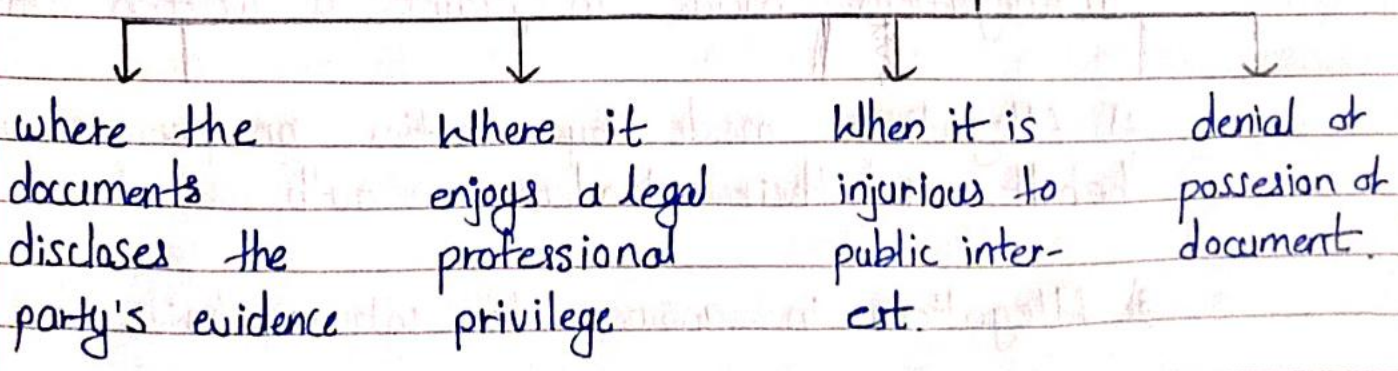 where the
documents
discloses the
party's evidence
Where it
enjoys a legal
professional
privilege
When it is
injurious to
public inter-
est.
denial of
possesion of
document.